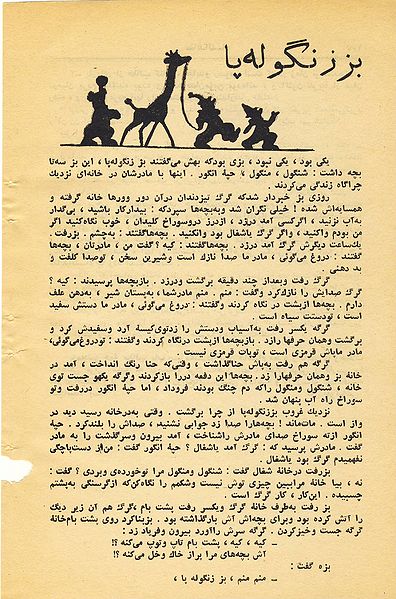 بز زنگوله‌پا
یکی بود ، یکی نبود ، بزی بودکه بهش می‌گفتند بز زنگوله‌پا ، این بز سه‌تا
بچه داشت : شنگول ، منگول ، حبهٔ انگور . اینها با مادرشان در خانه‌ای نزدیک
چراگاه زندگی می‌کردند .
روزی بز خبردار شدکه گرگ تیزدندان درآن دور وورها خانه گرفته و
همسایه‌اش شده ! خیلی نگران شد وبه‌بچه‌ها سپردکه : بیدارکار باشید ، بی‌گدار
به‌آب نزنید ، اگرکسی آمد درزد ، ازدرز دروسوراخ کلیدان ، خوب نگاه‌کنید اگر
من بودم واکنید ، واگر گرگ یاشغال بود وانکنید . بچه‌هاگفتند : به‌چشم . بزرفت .
یک‌ساعت دیگرش گرگ آمد درزد . بچه‌هاگفتند : کیه ؟ گفت من ، مادرتان ، بچه‌ها
گفتند : دروغ می‌گوئی ، مادر ما صدا نازک است وشیرین سخن ، توصدا کلفت و
بد دهنی .
گرگ رفت وبعداز چند دقیقه برگشت ودرزد . بازبچه‌ها پرسیدند : کیه ؟
گرگ صدایش را نازک‌کرد وگفت : منم . منم مادرشما ، به‌پستان شیر ، به‌دهن علف
دارم . بچه‌ها ازپشت در نگاه کردند وگفتند : دروغ می‌گوئی ، مادر ما دستش سفید
است ، تودستت سیاه است .
گرگه یکسر رفت به‌آسیاب ودستش را زدتوی‌کیسهٔ آرد وسفیدش کرد و
برگشت وهمان حرفها رازد . بازبچه‌ها ازپشت درنگاه کردند وگفتند : تودروغ‌می‌گوئی ،
مادر ماپاش قرمزی است ، توپات قرمزی نیست .
گرگه هم رفت به‌پاش حناگذاشت ، وقتی‌که حنا رنگ انداخت ، آمد در
خانهٔ بز وهمان حرفهارا زد . بچه‌ها این دفعه دررا بازکردند وگرگه یکهو جست توی
خانه ، شنگول ومنگول راکه دم چنگ بودند فرودداد ، اما حبهٔ انگور دررفت وتو
سوراخ راه آب پنهان شد .
نزدیک غروب بززنگوله‌پا از چرا برگشت . وقتی به‌درخانه رسید دید در
واز است . مات‌ماند ! بچه‌هارا صدا زد جوابی نشنید ، صداش رابلندکرد . حبهٔ
انگور ازته سوراخ صدای مادرش راشناخت ، آمد بیرون وسرگذشت را به مادر
گفت . مادرش پرسید که : گرگ آمد یاشغال ؟ حبهٔ انگور گفت : من‌از دست‌پاچگی
نفهمیدم گرگ بود یاشغال .
بزرفت درخانهٔ شغال گفت : شنگول ومنگول مرا توخورده‌ی وبردی ؟ گفت :
نه ، بیا خانهٔ مراببین چیزی توش نیست وشکمم رانگاه‌کن‌که ازگرسنگی به‌پشتم
چسبیده . این‌کار ، کار گرگ است .
بز رفت به‌طرف خانهٔ گرگ ویکسر رفت پشت بام ، گرگ هم آن زیر دیگ
را آتش کرده بود وبرای بچه‌اش آش بارگذاشته بود . بزبناکرد روی پشت بام‌خانهٔ
گرگه جست وخیزکردن . گرگه سرش راآورد بیرون وفریاد زد :
ــ کیه ، کیه ، پشت بام تاپ وتوپ می‌کنه ؟!
آش بچه‌های مرا پراز خاک وخل می‌کنه ؟!
بزه گفت :
ــ منم منم ، بز زنگوله پا ،